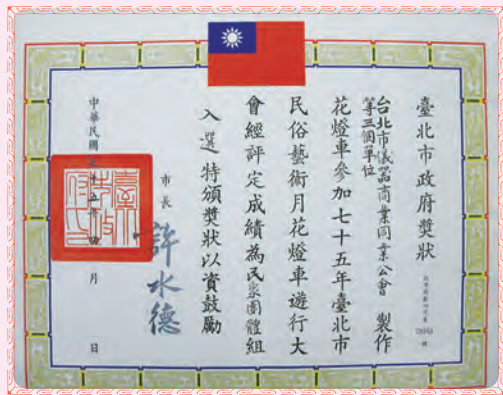 臺北市政府獎狀
台北市儀器商業同業公會
等三個單位
製作
花燈車參加七十五年臺北市
民俗藝術月花燈車遊行大
會經評定成績為民眾團體組
入選特頒獎狀以資鼓勵
市長
許水德
中華民國
五年
月
日